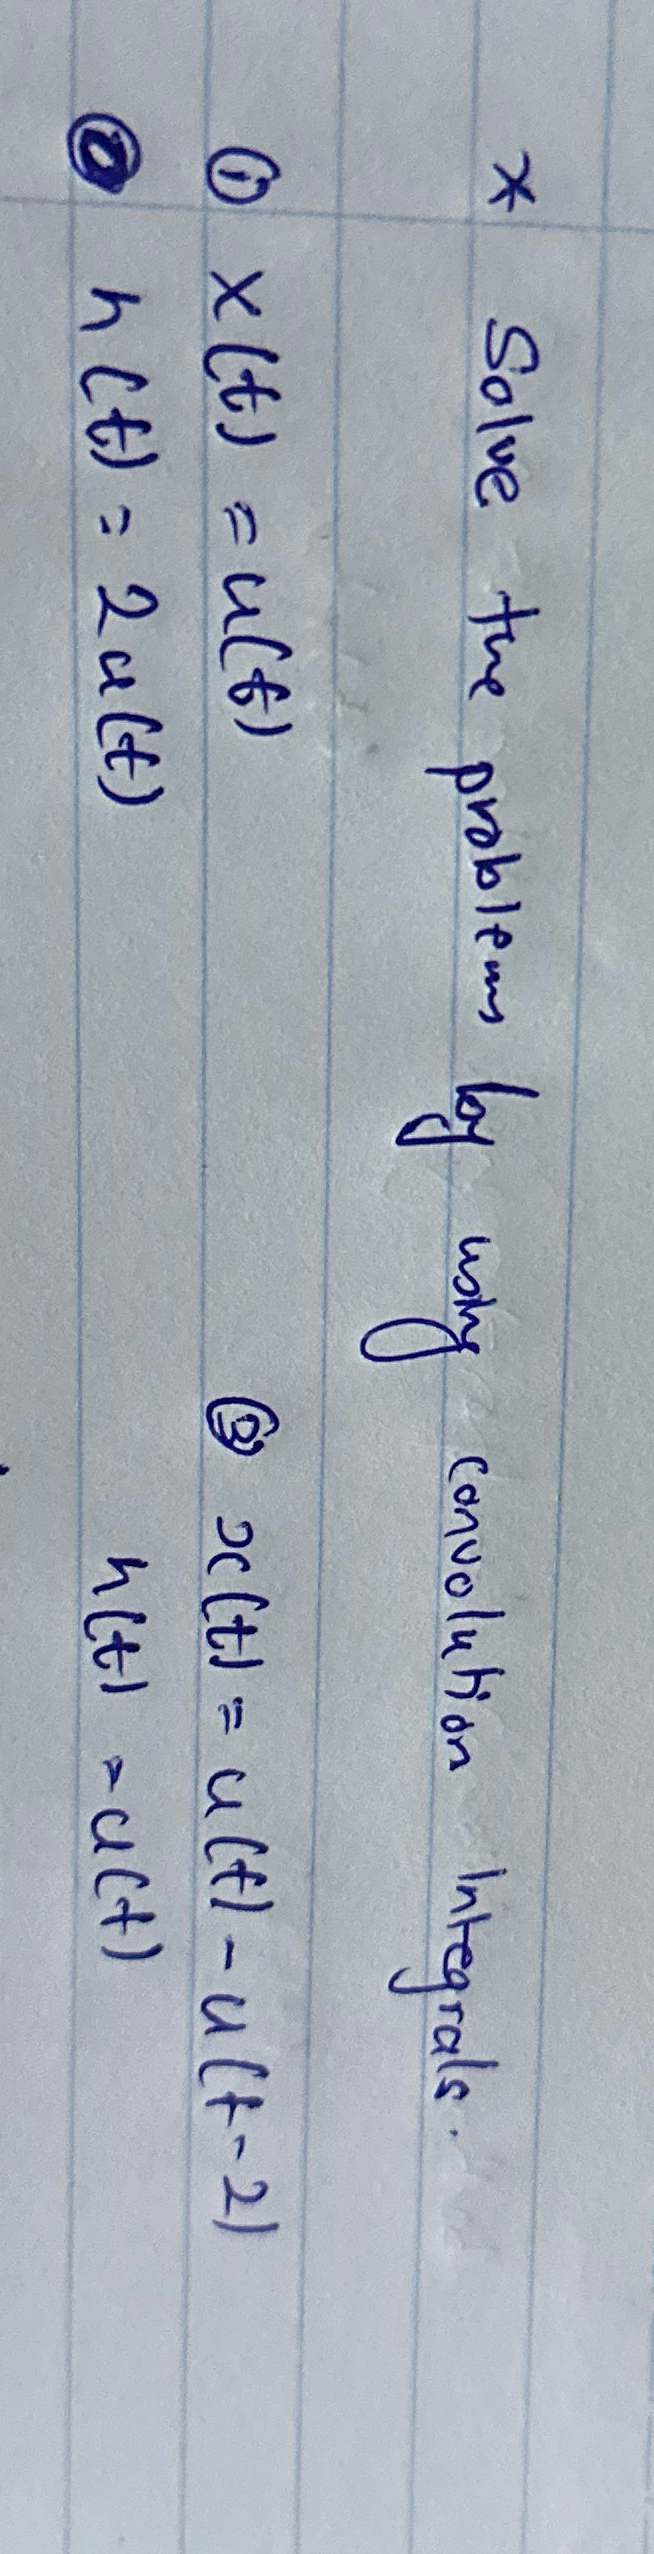 * Solve the problems by using convolution Integrals.
① x(t) = u(t) ② x(t) = u(t) - u(t-2)
h(t) = 2u(t) h(t) = u(t)